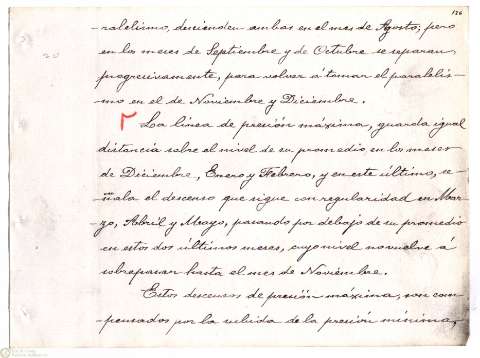 126
ralelismo, descienden ambas en el mes de Agosto; pero
en los meses de Septiembre y de Octubre se separan
progresivamente, para volver á tomar el paralelis-
mo en el de Noviembre y Diciembre.
La línea de presión máxima, guarda igual
distancia sobre el nivel de su promedio en los meses
de Diciembre, Enero y Febrero, y en este último, se-
ñala el descenso que sigue con regularidad en Mar-
zo, Abril y Mayo, pasando por debajo de su promedio
en estos dos últimos meses, cuyo nivel no vuelve á
sobrepasar hasta el mes de Noviembre.
Estos descensos de presión máxima, son com-
pensados por la subida de la presión mínima,